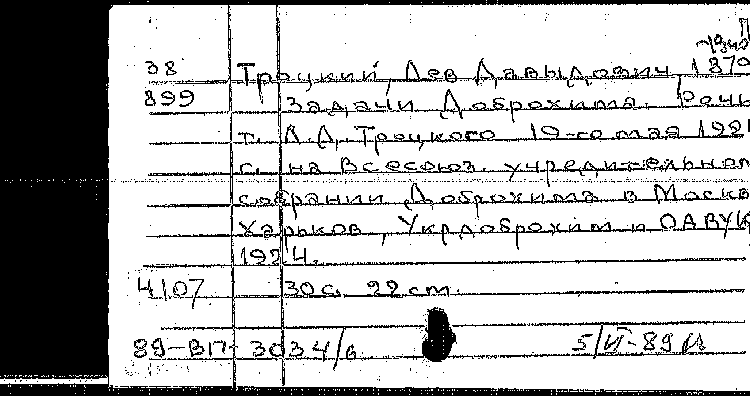 -1940
38 Троцкий, Лев Давыдович, 1879
899 Задачи Доброхима. Речь
т. Л.Д. Троцкого 19-го мая 192
г. на Всесоюз. учредительном
собрании Доброхима в Москв
Харьков, Укрдоброхим и ОАВУК
1924.
4107 30 с. 22 cm.
89-ВП-3034/в 5/VI-89